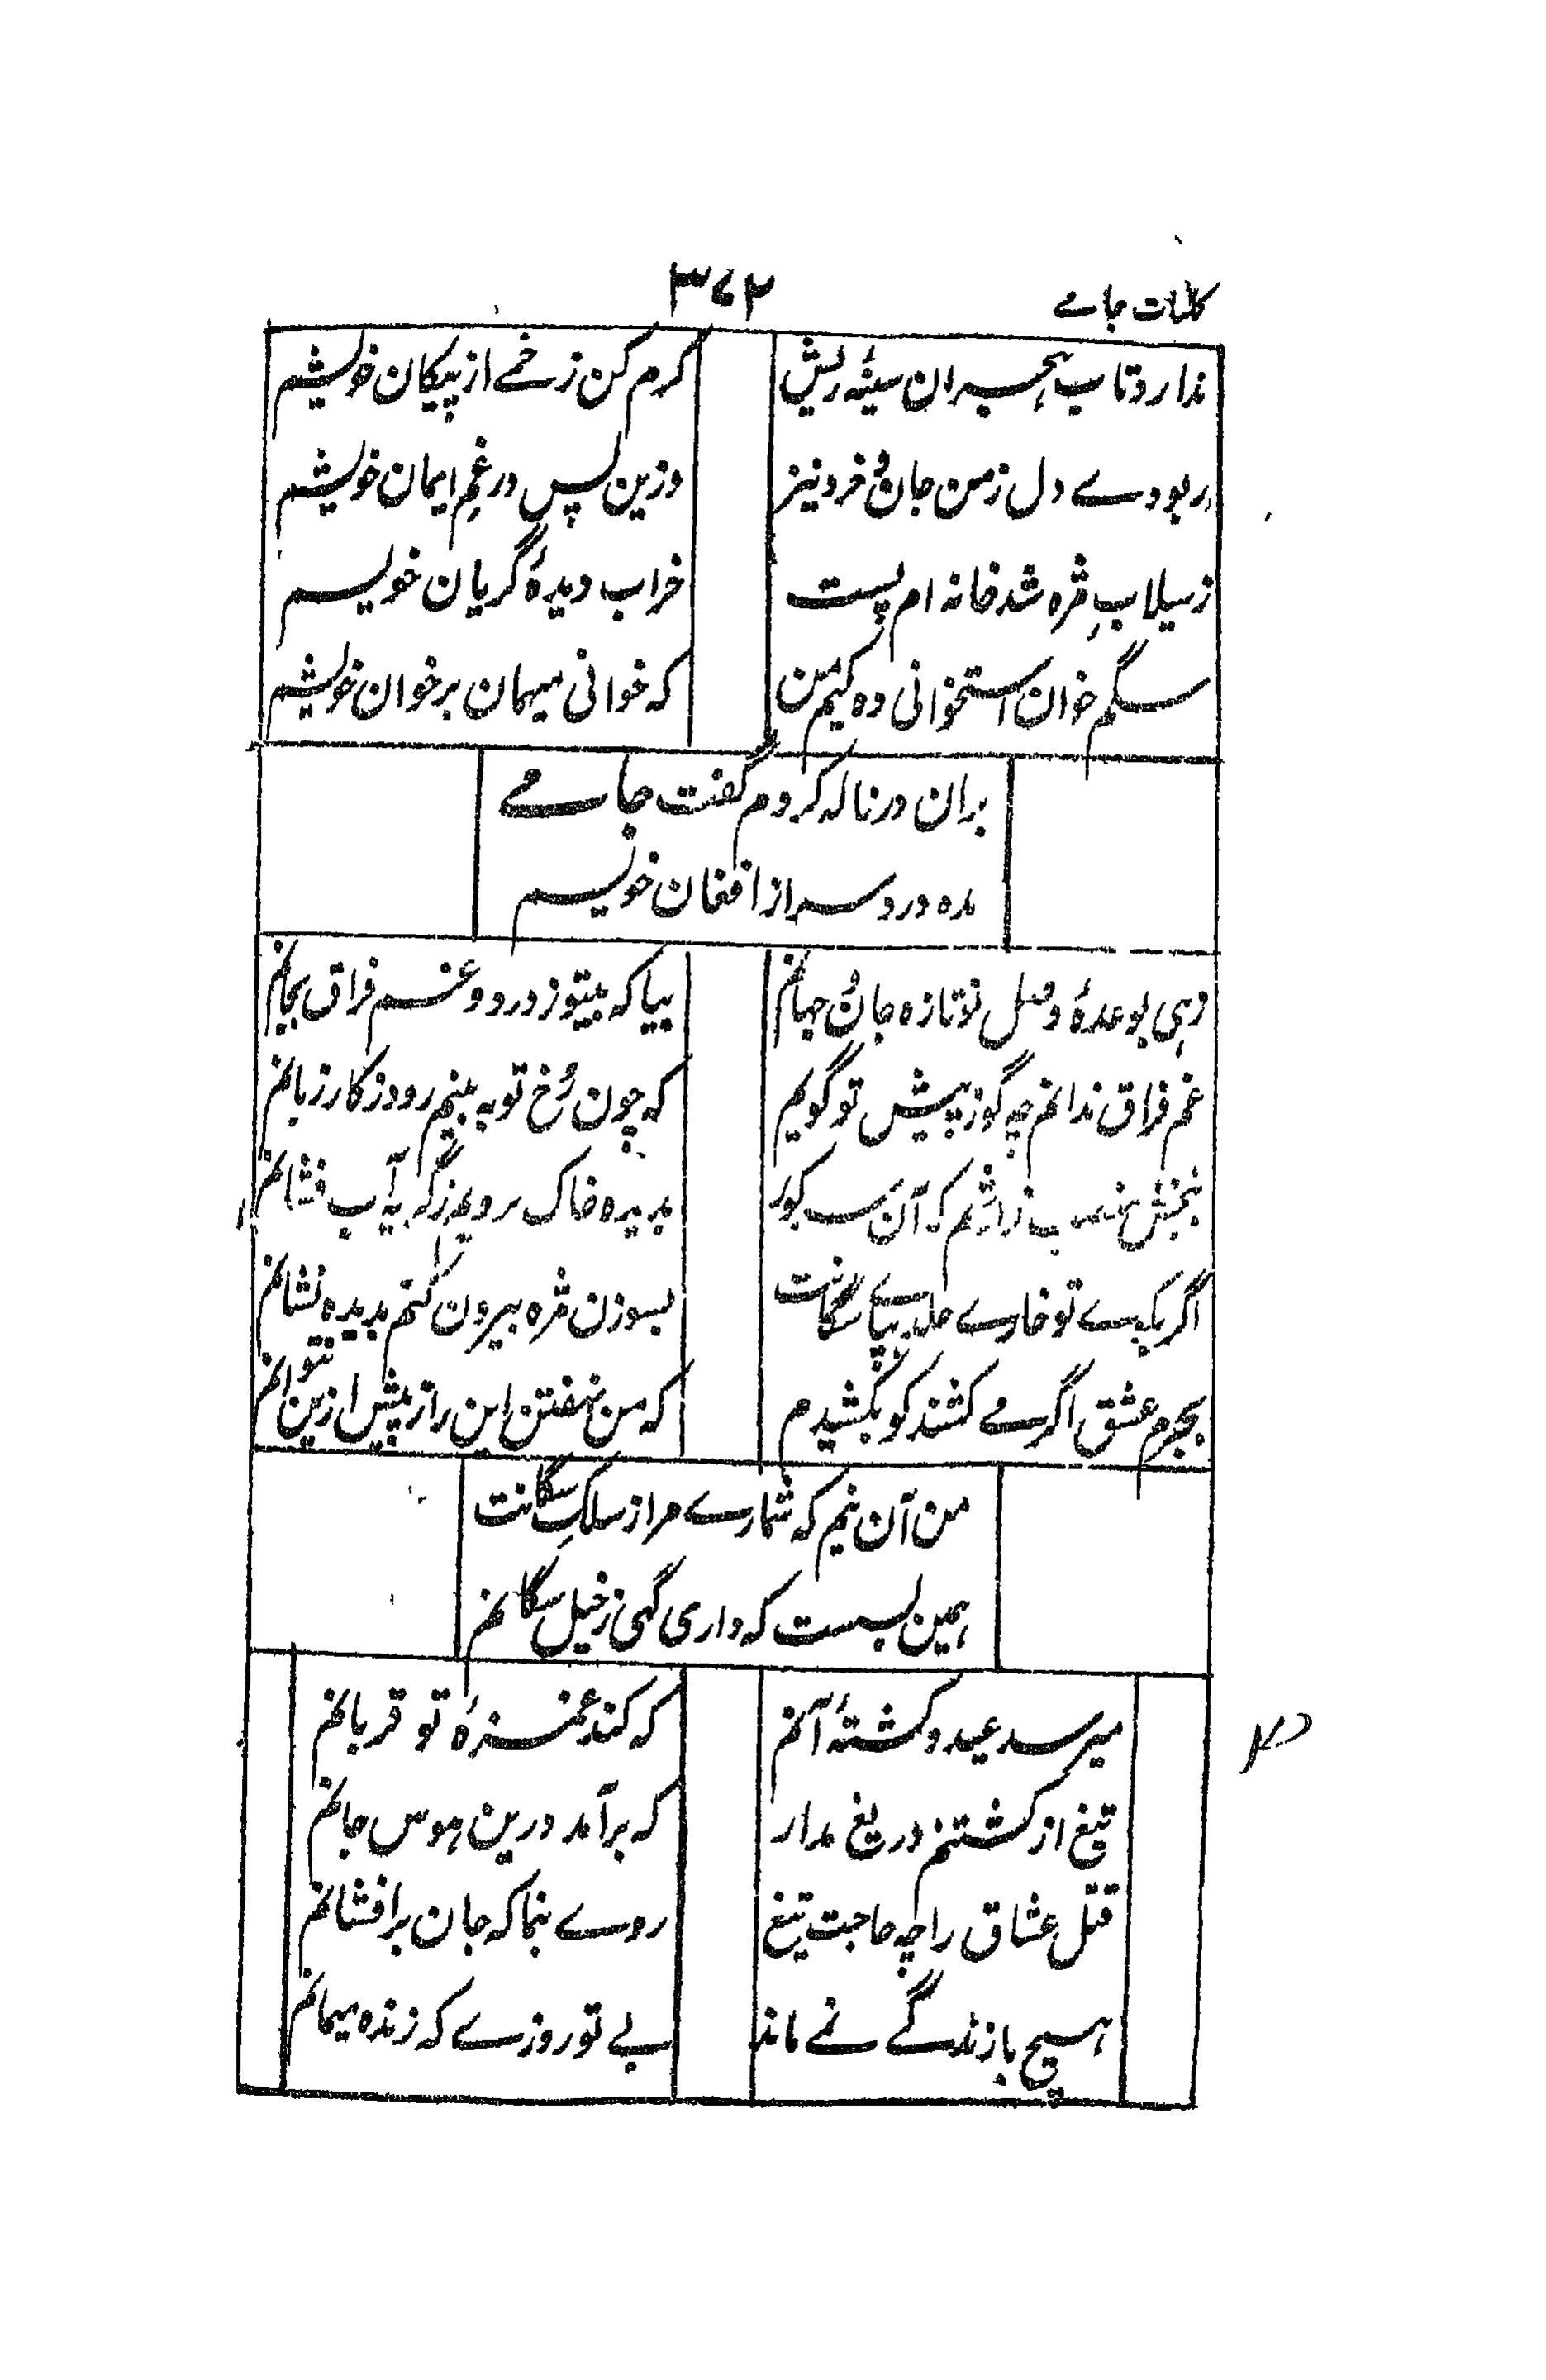 کلیات جامے
۳۷۲
ندارد تاب ہجران سینۂ ریش
کرم کن زخمے از پیکان خویشم
ربودے دل ز من جان و خرد نیز
وزین پس در غمِ ایمان خویشم
ز سیلابِ مژہ شد خانہ ام پست
خراب دیدۂ گریان خویشم
سگم خوان استخوانی دہ کیم من
کہ خوانی میہمان بر خوان خویشم
بران در نالہ کردم گفت جامے
مدہ درد سر از افغان خویشم
زہی بوعدۂ وصل تو تازہ جان جہانم
بیا کہ بیتو ز درد و غم فراق بجانم
غم فراق ندانم چہ گونہ پیش تو گویم
کہ چون رُخ تو بہ بینم رود ز کار زبانم
کہ آن
بدیدہ خاک در و یم زگریہ آب فشانم
اگر تو خارے بپاے سگانت
بسوزن مژہ بیرون کنم بدیدہ نشانم
بجرم عشق اگر مے کشند گو بکشیدم
کہ من نہفتن این راز بیش ازین نتوانم
من آن نیم کہ شمارے مرا ز سلکِ سگانت
ہمین بسست کہ داری گہی ز خیل سگانم
میرسد عید و کشتۂ آنم
کہ کند غمزۂ تو قربانم
تیغ از کشتنم دریغ مدار
کہ برآمد درین ہوس جانم
قتل عشاق را چہ حاجت تیغ
روے بنما کہ جان برافشانم
ہیچ با زندگے نمے ماند
بے تو روزے کہ زندہ میمانم